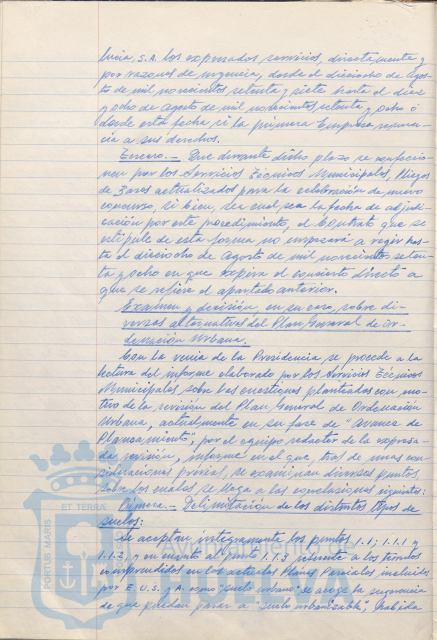 lucia, S.A. los expresados servicios, directamente y
por razones de urgencia, desde el dieciocho de agos-
to de mil novecientos setenta y siete hasta el diez
y ocho de agosto de mil novecientos setenta y ocho ó
desde esta fecha si la primera Empresa renun-
cia a sus derechos.
Tercero.- Que durante dicho plazo se confeccio-
nen por los Servicios Técnicos Municipales, Pliegos
de Bases actualizados para la celebración de nuevo
concurso, si bien, sea cual sea la fecha de adjudi-
cación por este procedimiento, el Contrato que se
estipule de esta forma no empezará a regir has-
ta el dieciocho de agosto de mil novecientos seten-
ta y ocho en que expira el concierto directo a
que se refiere el apartado anterior.
Exámen y decisión, en su caso, sobre di-
versas alternativas del Plan General de Or-
denación Urbana.
Con la venia de la Presidencia se procede a la
lectura del informe elaborado por los Servicios Técnicos
Municipales, sobre las cuestiones planteadas con mo-
tivo de la revisión del Plan General de Ordenación
Urbana, actualmente en su fase de "Avance de
Planeamiento", por el equipo redactor de la expresa-
da revisión, informe en el que, tras de unas con-
sideraciones previas, se examinan diversos puntos,
sobre los cuales se llega a las conclusiones siguientes:
Primera.- Delimitación de los distintos tipos de
suelos:
Se aceptan íntegramente los puntos 1.1; 1.1.1 y
1.1.2, y en cuanto al punto 1.1.3 referente a los terrenos
comprendidos en los actuales Planes Parciales, incluidos
por E.U.S.A. como "suelo urbano", se acoge la sugerencia
de que puedan pasar a "suelo urbanizable", habida
PORTUS MARIS ET TERRAE